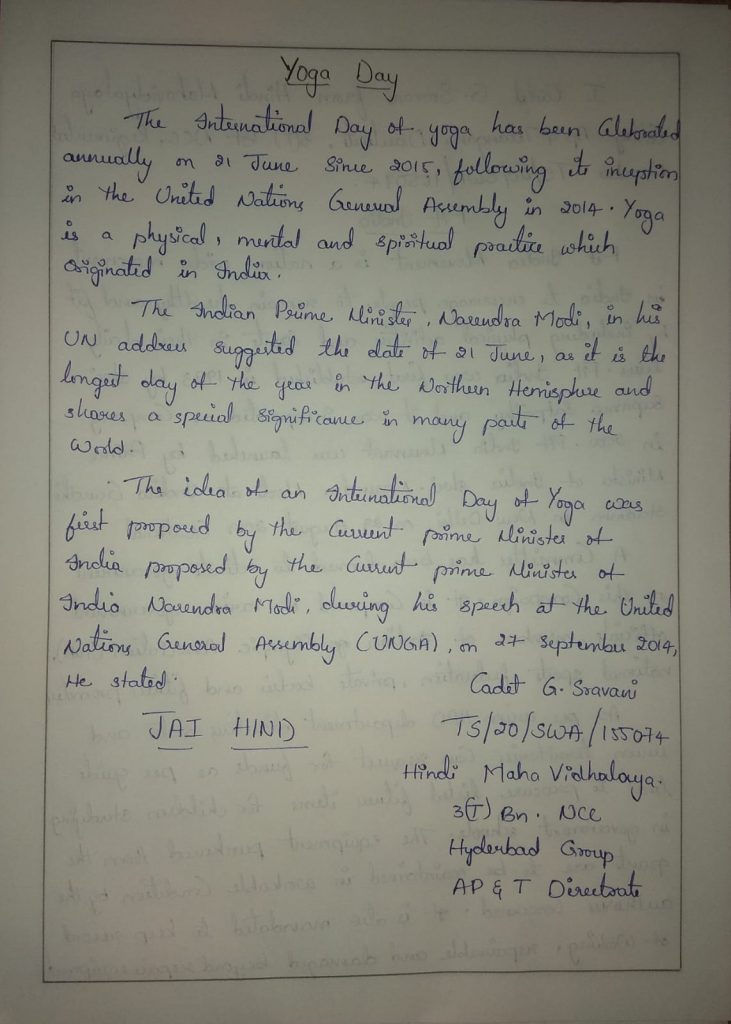 Yoga Day
The International Day of yoga has been Celebrated
annually on 21 June Since 2015, following its inception
in the United Nations General Assembly in 2014. Yoga
is a physical, mental and spiritual practice which
Originated in India.
The Indian Prime Minister, Narendra Modi, in his
UN address suggested the date of 21 June, as it is the
longest day of the year in the Northern Hemisphere and
shares a special Significance in many parts of the
World.
The idea of an International Day of Yoga was
first proposed by the Current prime Minister of
India proposed by the Current prime Minister of
India Narendra Modi, during his speech at the United
Nations General Assembly (UNGA), on 27 September 2014,
He stated.
Cadet G. Sravani
JAI HIND
TS/20/SWA/155074
Hindi Maha Vidhalaya.
3(T) Bn. NCC
Hyderbad Group
AP & T Directorate